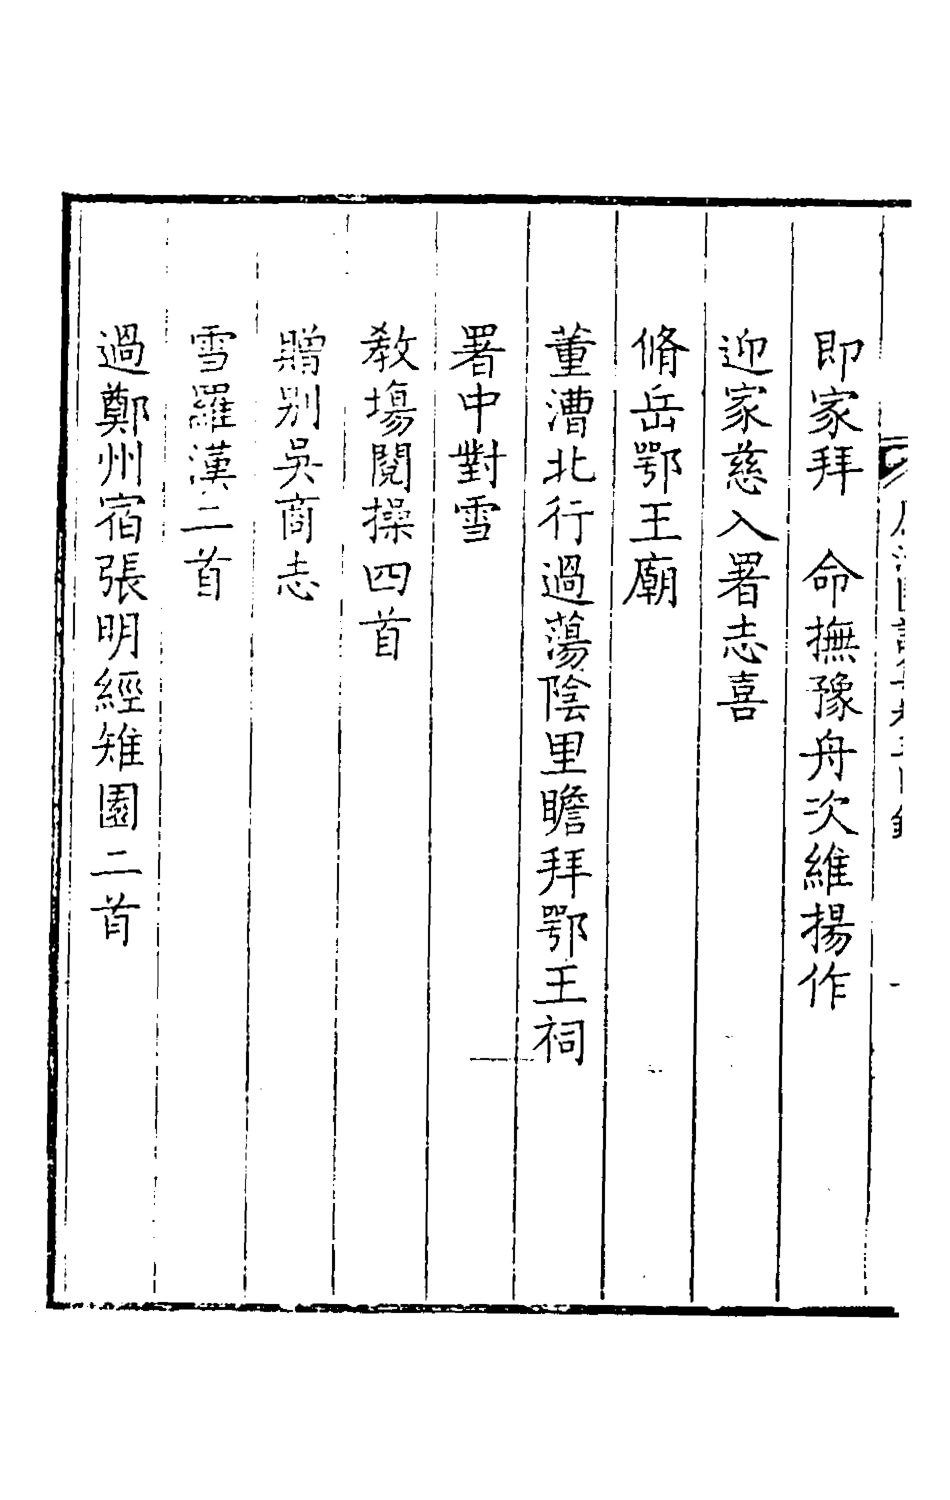 即家拜　命撫豫舟次維揚作
迎家慈入署志喜
脩岳鄂王廟
董漕北行過蕩陰里瞻拜鄂王祠
署中對雪
教場閱操四首
贈別吳商志
雪羅漢二首
過鄭州宿張明經雉園二首